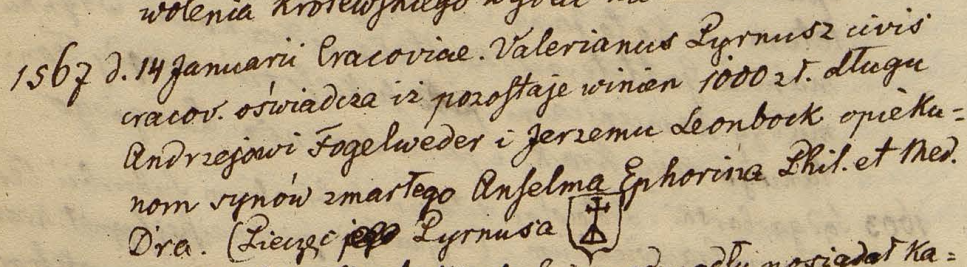 wolenia Królewskiego
1567 d. 14 Januarii Cracoviae. Valerianus Pyrnusz civis
cracov. oświadcza iż pozostaje winien 1000 zł. długu
Andrzejowi Fogelweder i Jerzemu Leonbock opieku=
nom synów zmarłego Anselma Ephorina Phil. et Med.
Dra. (Pieczęć jego Pyrnusa
posiadał ka=